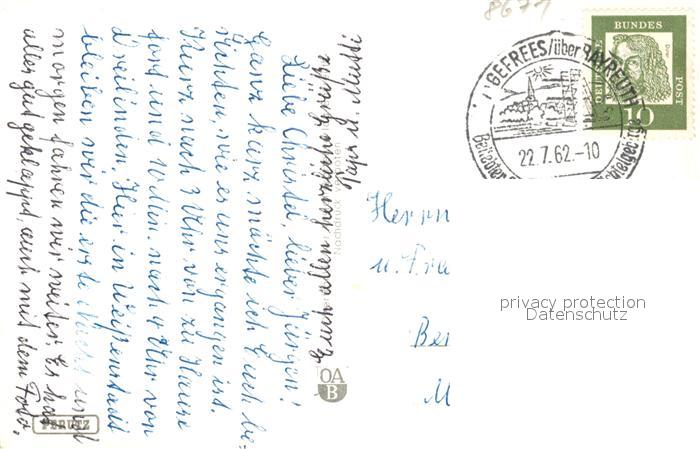 8677
GEFREES/über BAYREUTH
22.7.62.-10
BUNDES
POST
10
Liebe Christel, lieber Jürgen!
Ganz kurz möchte ich Euch be-
richten, wie es uns ergangen ist.
Kurz nach 3 Uhr von zu Hause
fort und 10 Min. nach 4 Uhr von
Dreilinden. Hier in Weißenstadt
bleiben wir die erste Nacht und
morgen fahren wir weiter. Es hat
alles gut geklappt, auch mit dem Foto.
Euch allen herzliche Grüße
Papi u. Mutti
Nachdruck verboten
OA
B
PERUTZ
Herrn
u. Fra
Ber
M
privacy protection
Datenschutz